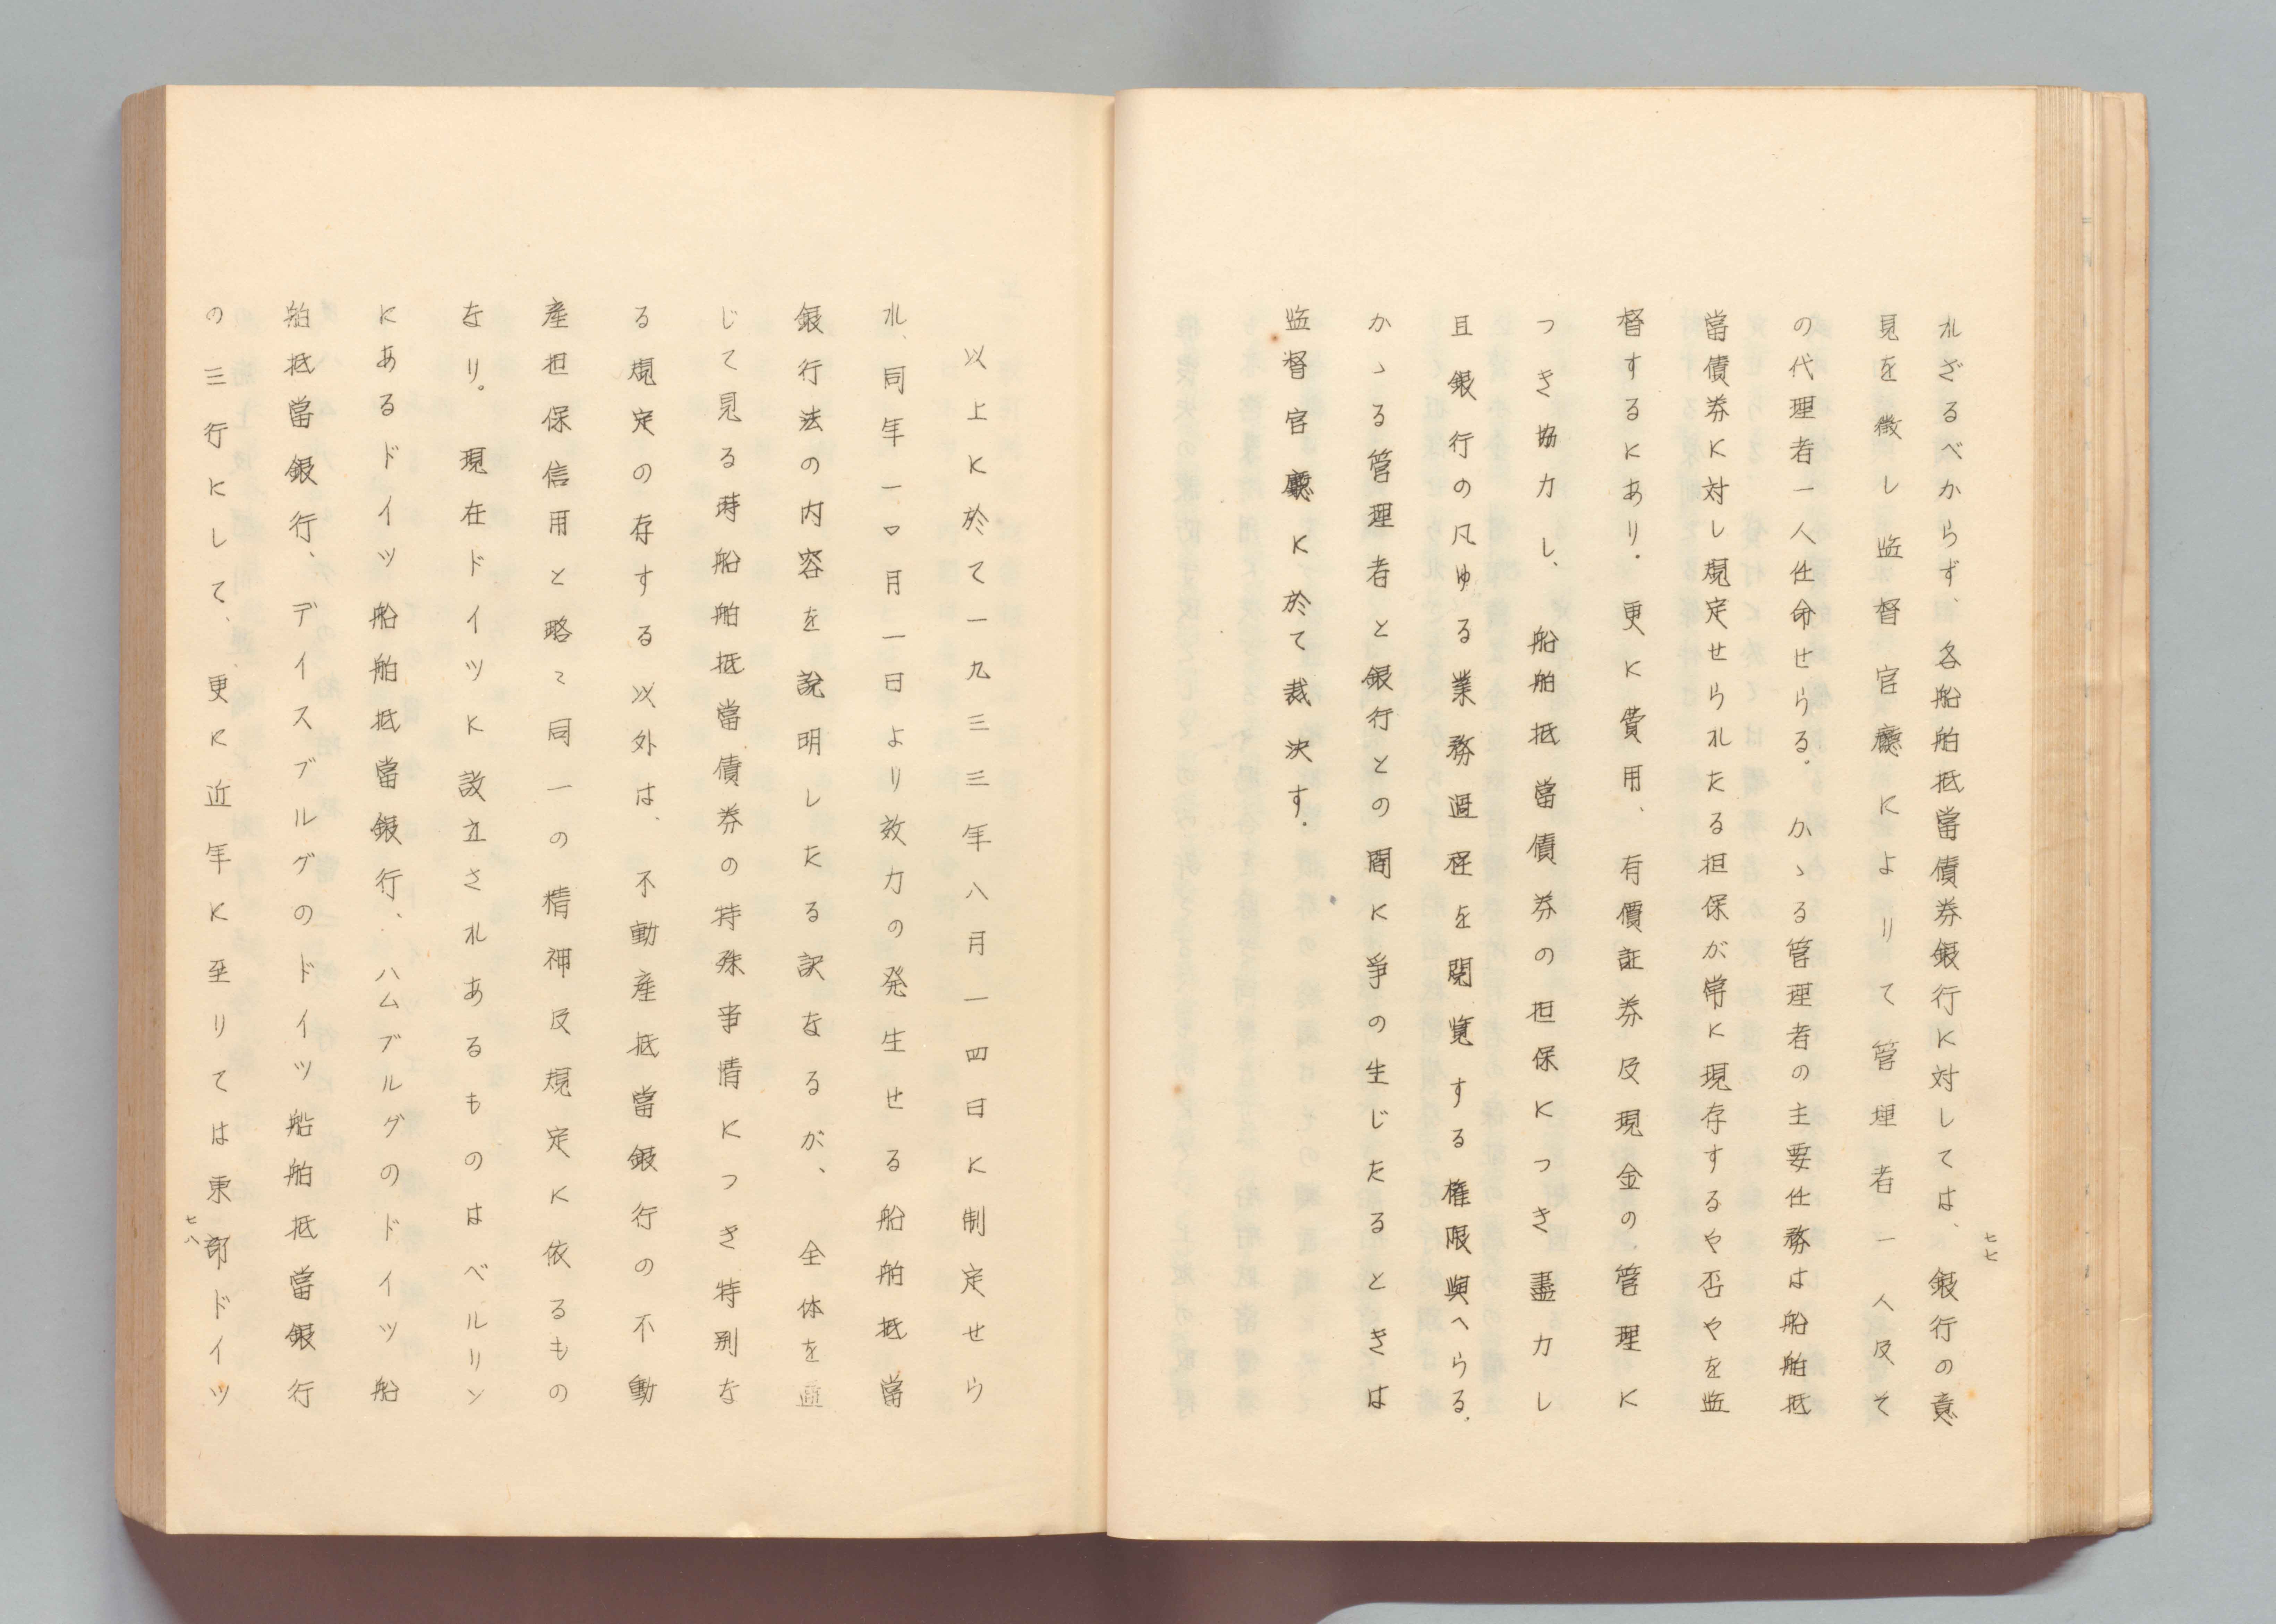 れざるべからず、各船舶抵當債券銀行に対しては、銀行の意
見を徴し監督官廳により て管理者一人及そ
の代理者一人任命せらる. かゝる管理者の主要任務は船舶抵
當債券に対し規定せられたる担保が常に現存するや否やを監
督するにあり. 更に費用、有價証券及現金の管理に
つき協力し、船舶抵當債券の担保につき盡力し
且銀行の凡ゆる業務過程を閲覧する権限與へらる.
かゝる管理者と銀行との間に爭の生じたるときは
監督官廳に於て裁決す.
七七
以上に於て一九三三年八月一四日に制定せら
れ、同年一〇月一日より效力の発生せる船舶抵當
銀行法の内容を說明したる訳なるが、全体を通
じて見る時船舶抵當債券の特殊事情につき特別な
る規定の存する以外は、不動產抵當銀行の不動
產担保信用と略々同一の精神及規定に依るもの
なり。現在ドイツに設立されあるものはベルリン
にあるドイツ船舶抵當銀行、ハムブルグのドイツ船
舶抵當銀行、デイスブルグのドイツ船舶抵當銀行
の三行にして、更に近年に至りては東部ドイツ
七八